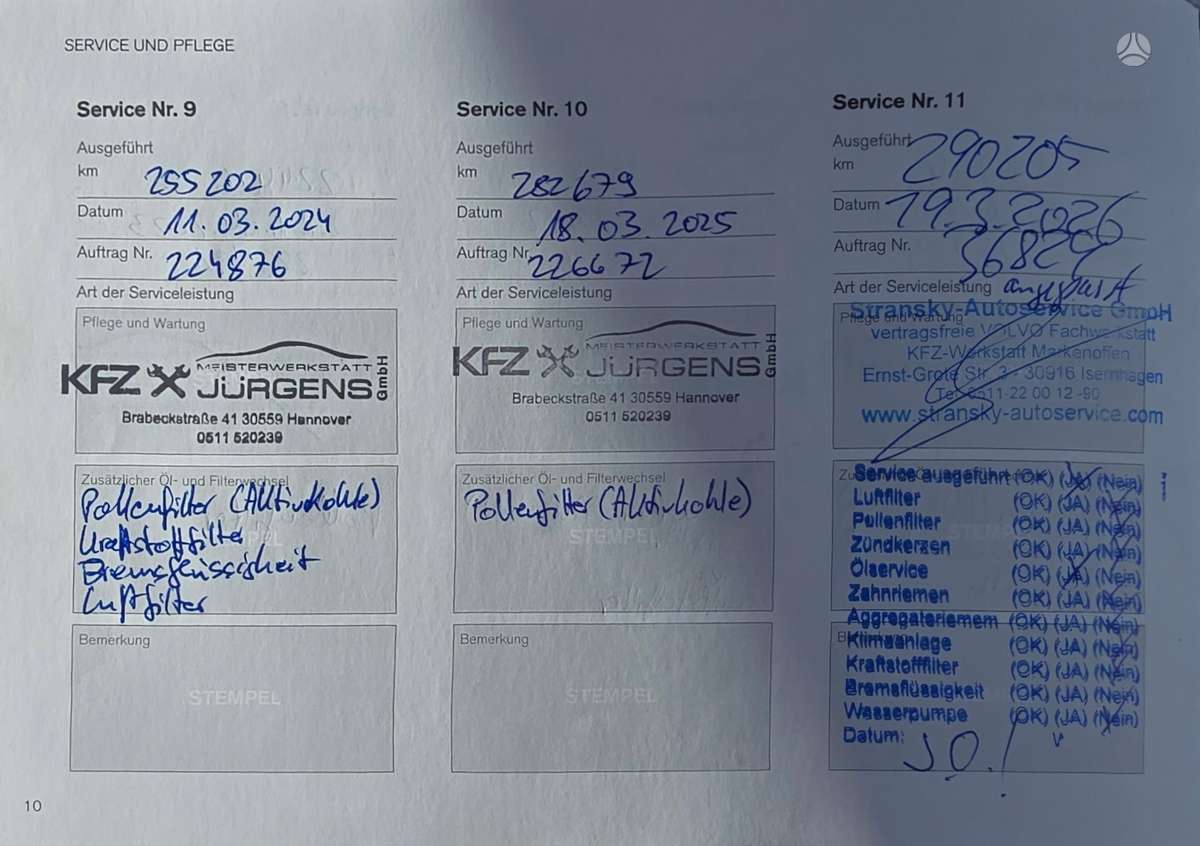 SERVICE UND PFLEGE
Service Nr. 9
Ausgeführt
km 255202
Datum 11.03.2024
Auftrag Nr. 224876
Art der Serviceleistung
Pflege und Wartung
KFZ MEISTERWERKSTATT JÜRGENS GmbH
Brabeckstraße 41 30559 Hannover
0511 520239
Zusätzlicher Öl- und Filterwechsel
Pollenfilter (Aktivkohle)
Kraftstofffilter
Bremsflüssigkeit
Luftfilter
Bemerkung
STEMPEL
Service Nr. 10
Ausgeführt
km 282679
Datum 18.03.2025
Auftrag Nr. 226672
Art der Serviceleistung
Pflege und Wartung
KFZ MEISTERWERKSTATT JÜRGENS GmbH
Brabeckstraße 41 30559 Hannover
0511 520239
Zusätzlicher Öl- und Filterwechsel
Pollenfilter (Aktivkohle)
STEMPEL
Bemerkung
STEMPEL
Service Nr. 11
Ausgeführt
km 290205
Datum 19.3.2026
Auftrag Nr. 36829
Art der Serviceleistung
Pflege und Wartung
Stransky-Autoservice GmbH
vertragsfreie VOLVO Fachwerkstatt
KFZ-Werkstatt Markenoffen
Ernst-Grote Str. 3 - 30916 Isernhagen
Tel. 0511-22 00 12 -90
www.stransky-autoservice.com
Service ausgeführt (OK) (JA) (Nein)
Luftfilter (OK) (JA) (Nein)
Pollenfilter (OK) (JA) (Nein)
Zündkerzen (OK) (JA) (Nein)
Ölservice (OK) (JA) (Nein)
Zahnriemen (OK) (JA) (Nein)
Aggregateriemem (OK) (JA) (Nein)
Klimaanlage (OK) (JA) (Nein)
Kraftstofffilter (OK) (JA) (Nein)
Bremsflüssigkeit (OK) (JA) (Nein)
Wasserpumpe (OK) (JA) (Nein)
Datum:
10